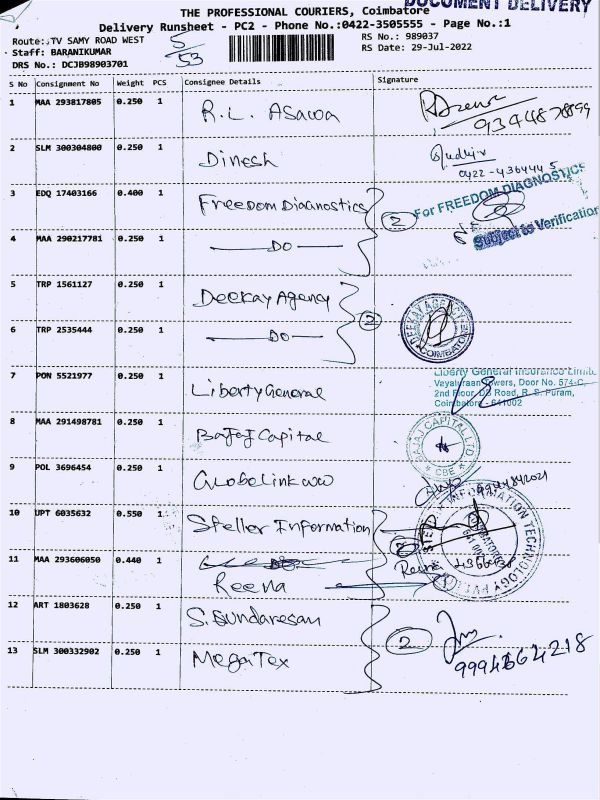 DOCUMENT DELIVERY
THE PROFESSIONAL COURIERS, Coimbatore
Delivery Runsheet - PC2 - Phone No.:0422-3505555 - Page No.:1
Route: TV SAMY ROAD WEST
5/53
RS No.: 989037
Staff: BARANIKUMAR
RS Date: 29-Jul-2022
DRS No.: DCJB98903701
S No Consignment No Weight PCS Consignee Details Signature
1 MAA 293817805 0.250 1 R.L. Asawa
9344878899
2 SLM 300304800 0.250 1 Dinesh
0422-4364445
3 EDQ 17403166 0.400 1 Freedom Diagnostics
2 For FREEDOM DIAGNOSTICS
Subject to Verification
4 MAA 290217781 0.250 1 DO
5 TRP 1561127 0.250 1 Deekay Agency
2 DEEKAY AGENCY COIMBATORE
6 TRP 2535444 0.250 1 DO
7 PON 5521977 0.250 1 Liberty General
Liberty General Insurance Limit
Vayalraan Towers, Door No. 574-C,
2nd Floor, DB Road, R. S. Puram,
Coimbatore - 641002
8 MAA 291498781 0.250 1 Bajaj Capital
BAJAJ CAPITAL LTD * CBE *
9 POL 3696454 0.250 1 Globelink ww
9944842021
10 UPT 6035632 0.550 1 Steller Information
2 INFORMATION TECHNOLOGY
11 MAA 293606050 0.440 1 Reena
Reena
12 ART 1803628 0.250 1 S. Sundaresan
2
13 SLM 300332902 0.250 1 MegaTex